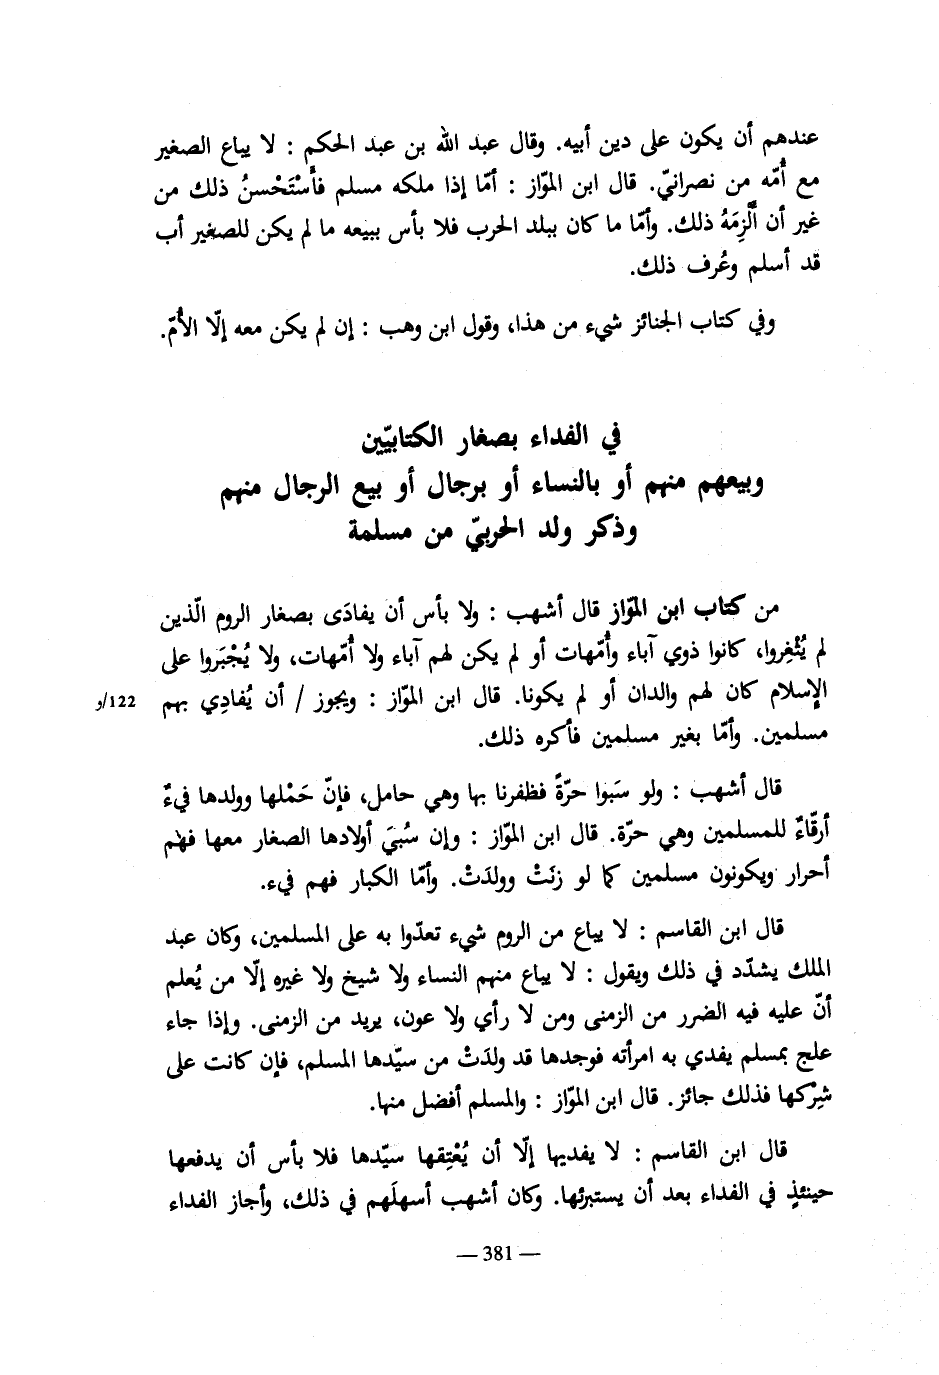 عندهم أن يكون على دين أبيه. وقال عبد الله بن عبد الحكم : لا يباع الصغير
مع أُمّه من نصرانيّ. قال ابن الموّاز : أمّا إذا ملكه مسلم فأَسْتَحْسنُ ذلك من
غير أن أُلْزِمَهُ ذلك. وأمّا ما كان ببلد الحرب فلا بأس ببيعه ما لم يكن للصغير أب
قد أسلم وعُرف ذلك.
وفي كتاب الجنائز شيء من هذا، وقول ابن وهب : إن لم يكن معه إلّا الأُمّ.
في الفداء بصغار الكتابيّين
وبيعهم منهم أو بالنساء أو برجال أو بيع الرجال منهم
وذكر ولد الحربيّ من مسلمة
من كتاب ابن الموّاز قال أشهب : ولا بأس أن يفادَى بصغار الروم الّذين
لم يُثْغِروا، كانوا ذوي آباء وأُمّهات أو لم يكن لهم آباء ولا أُمّهات، ولا يُجْبَروا على
الإسلام كان لهم والدان أو لم يكونا. قال ابن الموّاز : ويجوز / أن يُفادِي بهم 122/و
مسلمين. وأمّا بغير مسلمين فأكره ذلك.
قال أشهب : ولو سَبَوا حرّةً فظفرنا بها وهي حامل، فإنّ حَمْلها وولدها فيءٌ
أرقّاءٌ للمسلمين وهي حرّة. قال ابن الموّاز : وإن سُبيَ أولادها الصغار معها فهم
أحرار ويكونون مسلمين كما لو زنَتْ وولدَتْ. وأمّا الكبار فهم فيء.
قال ابن القاسم : لا يباع من الروم شيء تعدّوا به على المسلمين، وكان عبد
الملك يشدّد في ذلك ويقول : لا يباع منهم النساء ولا شيخ ولا غيره إلّا من يُعلم
أنّ عليه فيه الضرر من الزمنى ومن لا رأي ولا عون، يريد من الزمنى. وإذا جاء
علج بمسلم يفدي به امرأته فوجدها قد ولدَتْ من سيّدها المسلم، فإن كانت على
شِرْكها فذلك جائز. قال ابن الموّاز : والمسلم أفضل منها.
قال ابن القاسم : لا يفديها إلّا أن يُعْتِقها سيّدها فلا بأس أن يدفعها
حينئذٍ في الفداء بعد أن يستبرئها. وكان أشهب أسهلَهم في ذلك، وأجاز الفداء
— 381 —